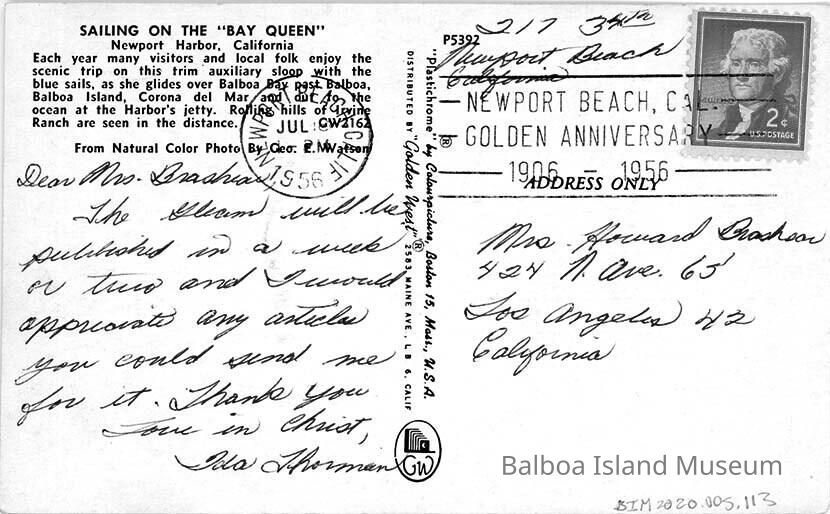 SAILING ON THE "BAY QUEEN"
Newport Harbor, California
Each year many visitors and local folk enjoy the
scenic trip on this trim auxiliary sloop with the
blue sails, as she glides over Balboa Bay past Balboa,
Balboa Island, Corona del Mar and out to the
ocean at the Harbor's jetty. Rolling hills of Irvine
Ranch are seen in the distance. GW2162
From Natural Color Photo By Geo. E. Watson
Dear Mrs. Brashear,
The Gleam will be
published in a week
or two and I would
appreciate any articles
you could send me
for it. Thank you
Love in Christ,
Ida Thorman
NEWPORT BEACH CALIF.
JUL
PM
1956
"Plastichrome" by Colourpicture, Boston 15, Mass., U.S.A.
DISTRIBUTED BY "Golden West" ® 2583 MAINE AVE., L B 6, CALIF
GW
P5392
217 34th
Newport Beach
California
NEWPORT BEACH, CAL.
GOLDEN ANNIVERSARY
1906 - 1956
2¢
U.S. POSTAGE
ADDRESS ONLY
Mrs. Howard Brashear
424 N. Ave. 65
Los Angeles 42
California
Balboa Island Museum
BIM2020.005.113